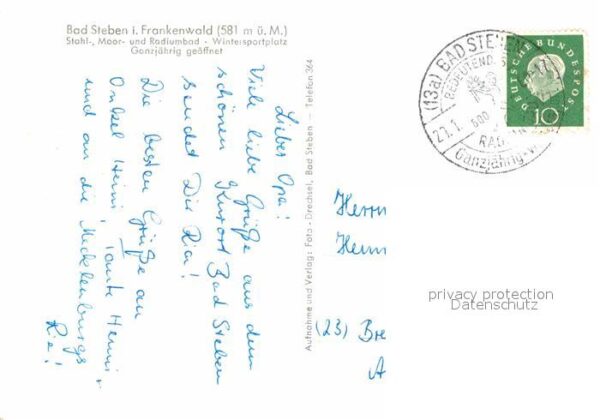 Bad Steben i. Frankenwald (581 m ü. M.)
Stahl-, Moor- und Radiumbad · Wintersportplatz
Ganzjährig geöffnet
Lieber Opa!
Viele liebe Grüße aus dem
schönen Kurort Bad Steben
sendet Dir Ria!
Die besten Grüße an
Onkel Heini, Tante Henni
und an die Mecklenburgs
Ria!
Aufnahme und Verlag: Foto-Drechsel, Bad Steben — Telefon 264
(13a) BAD STEBEN
BEDEUTEND
600
RAD
Ganzjährig
21.1.
DEUTSCHE BUNDESPOST
10
Herrn
Heinr
(23) Bre
A
privacy protection
Datenschutz